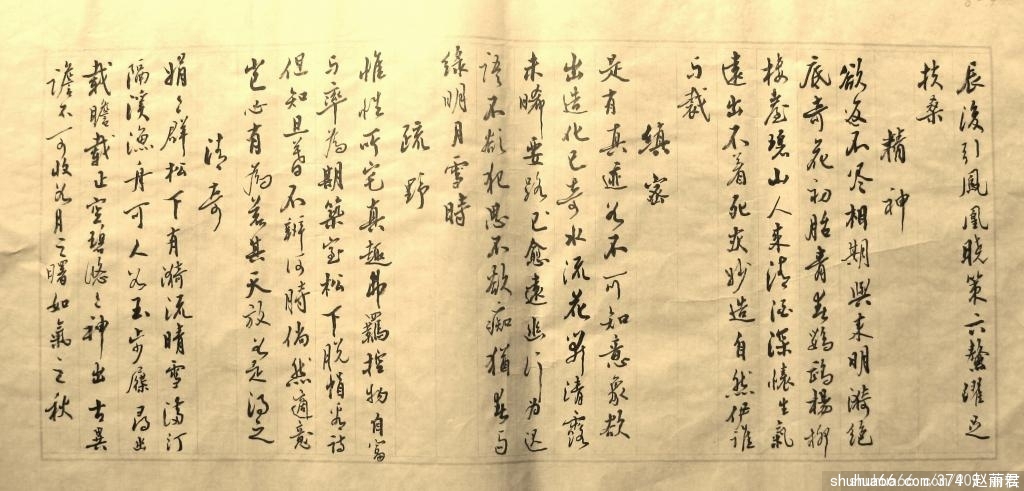 辰后引鳳凰晓策六鳌濯足
扶桑
精神
欲返不尽相期與来明漪绝
底奇花初胎青春鹦鹉楊柳
楼臺碧山人来清酒深懐生氣
遠出不着死灰妙造自然伊谁
与裁
缜密
是有真迹如不可知意象欲
出造化已奇水流花開清露
未晞要路已愈遠幽行为迟
語不欲犯思不欲痴猶春与
绿明月雪時
疏野
惟性所宅真趣弗羈控物自富
与率為期築室松下脱帽看詩
但知旦暮不辩何時倘然適意
岂必有為若其天放如是得之
清奇
娟々群松下有漪流晴雪滿汀
隔溪渔舟可人如玉步屧尋幽
载瞻载止空碧悠々神出古異
澹不可收如月之曙如氣之秋
shuhua
赵萧君